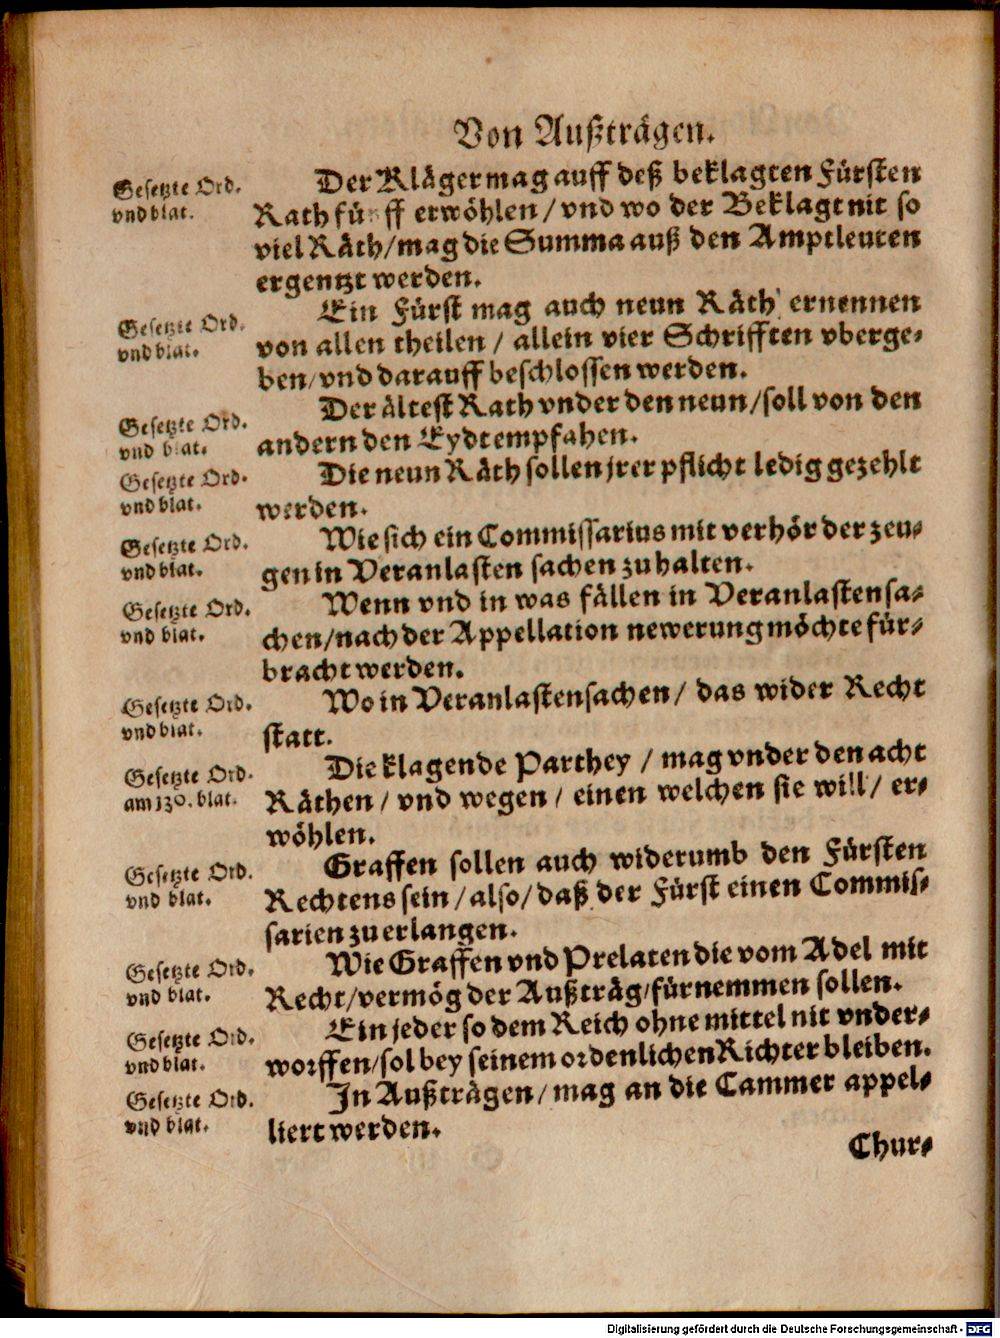 Von Außträgen.
Gesetzte Ord.
vnd blat.
Der Kläger mag auff deß beklagten Fürsten
Rath fünff erwöhlen / vnd wo der Beklagt nit so
viel Räth / mag die Summa auß den Amptleuten
ergentzt werden.
Gesetzte Ord.
vnd blat.
Ein Fürst mag auch neun Räth ernennen
von allen theilen / allein vier Schrifften vberge-
ben / vnd darauff beschlossen werden.
Gesetzte Ord.
vnd blat.
Der ältest Rath vnder den neun / soll von den
andern den Eydt empfahen.
Gesetzte Ord.
vnd blat.
Die neun Räth sollen jrer pflicht ledig gezehlt
werden.
Gesetzte Ord.
vnd blat.
Wie sich ein Commissarius mit verhör der zeu-
gen in Veranlasten sachen zuhalten.
Gesetzte Ord.
vnd blat.
Wenn vnd in was fällen in Veranlasten sa-
chen / nach der Appellation newerung möchte für-
bracht werden.
Gesetzte Ord.
vnd blat.
Wo in Veranlasten sachen / das wider Recht
statt.
Gesetzte Ord.
am 130. blat.
Die klagende Parthey / mag vnder den acht
Räthen / vnd wegen / einen welchen sie will / er-
wöhlen.
Gesetzte Ord.
vnd blat.
Graffen sollen auch widerumb den Fürsten
Rechtens sein / also / daß der Fürst einen Commis-
sarien zu erlangen.
Gesetzte Ord.
vnd blat.
Wie Graffen vnd Prelaten die vom Adel mit
Recht / vermög der Außträg / fürnemmen sollen.
Gesetzte Ord.
vnd blat.
Ein jeder so dem Reich ohne mittel nit vnder-
worffen / sol bey seinem ordenlichen Richter bleiben.
Gesetzte Ord.
vnd blat.
In Außträgen / mag an die Cammer appel-
liert werden.
Chur-
Digitalisierung gefördert durch die Deutsche Forschungsgemeinschaft - DFG